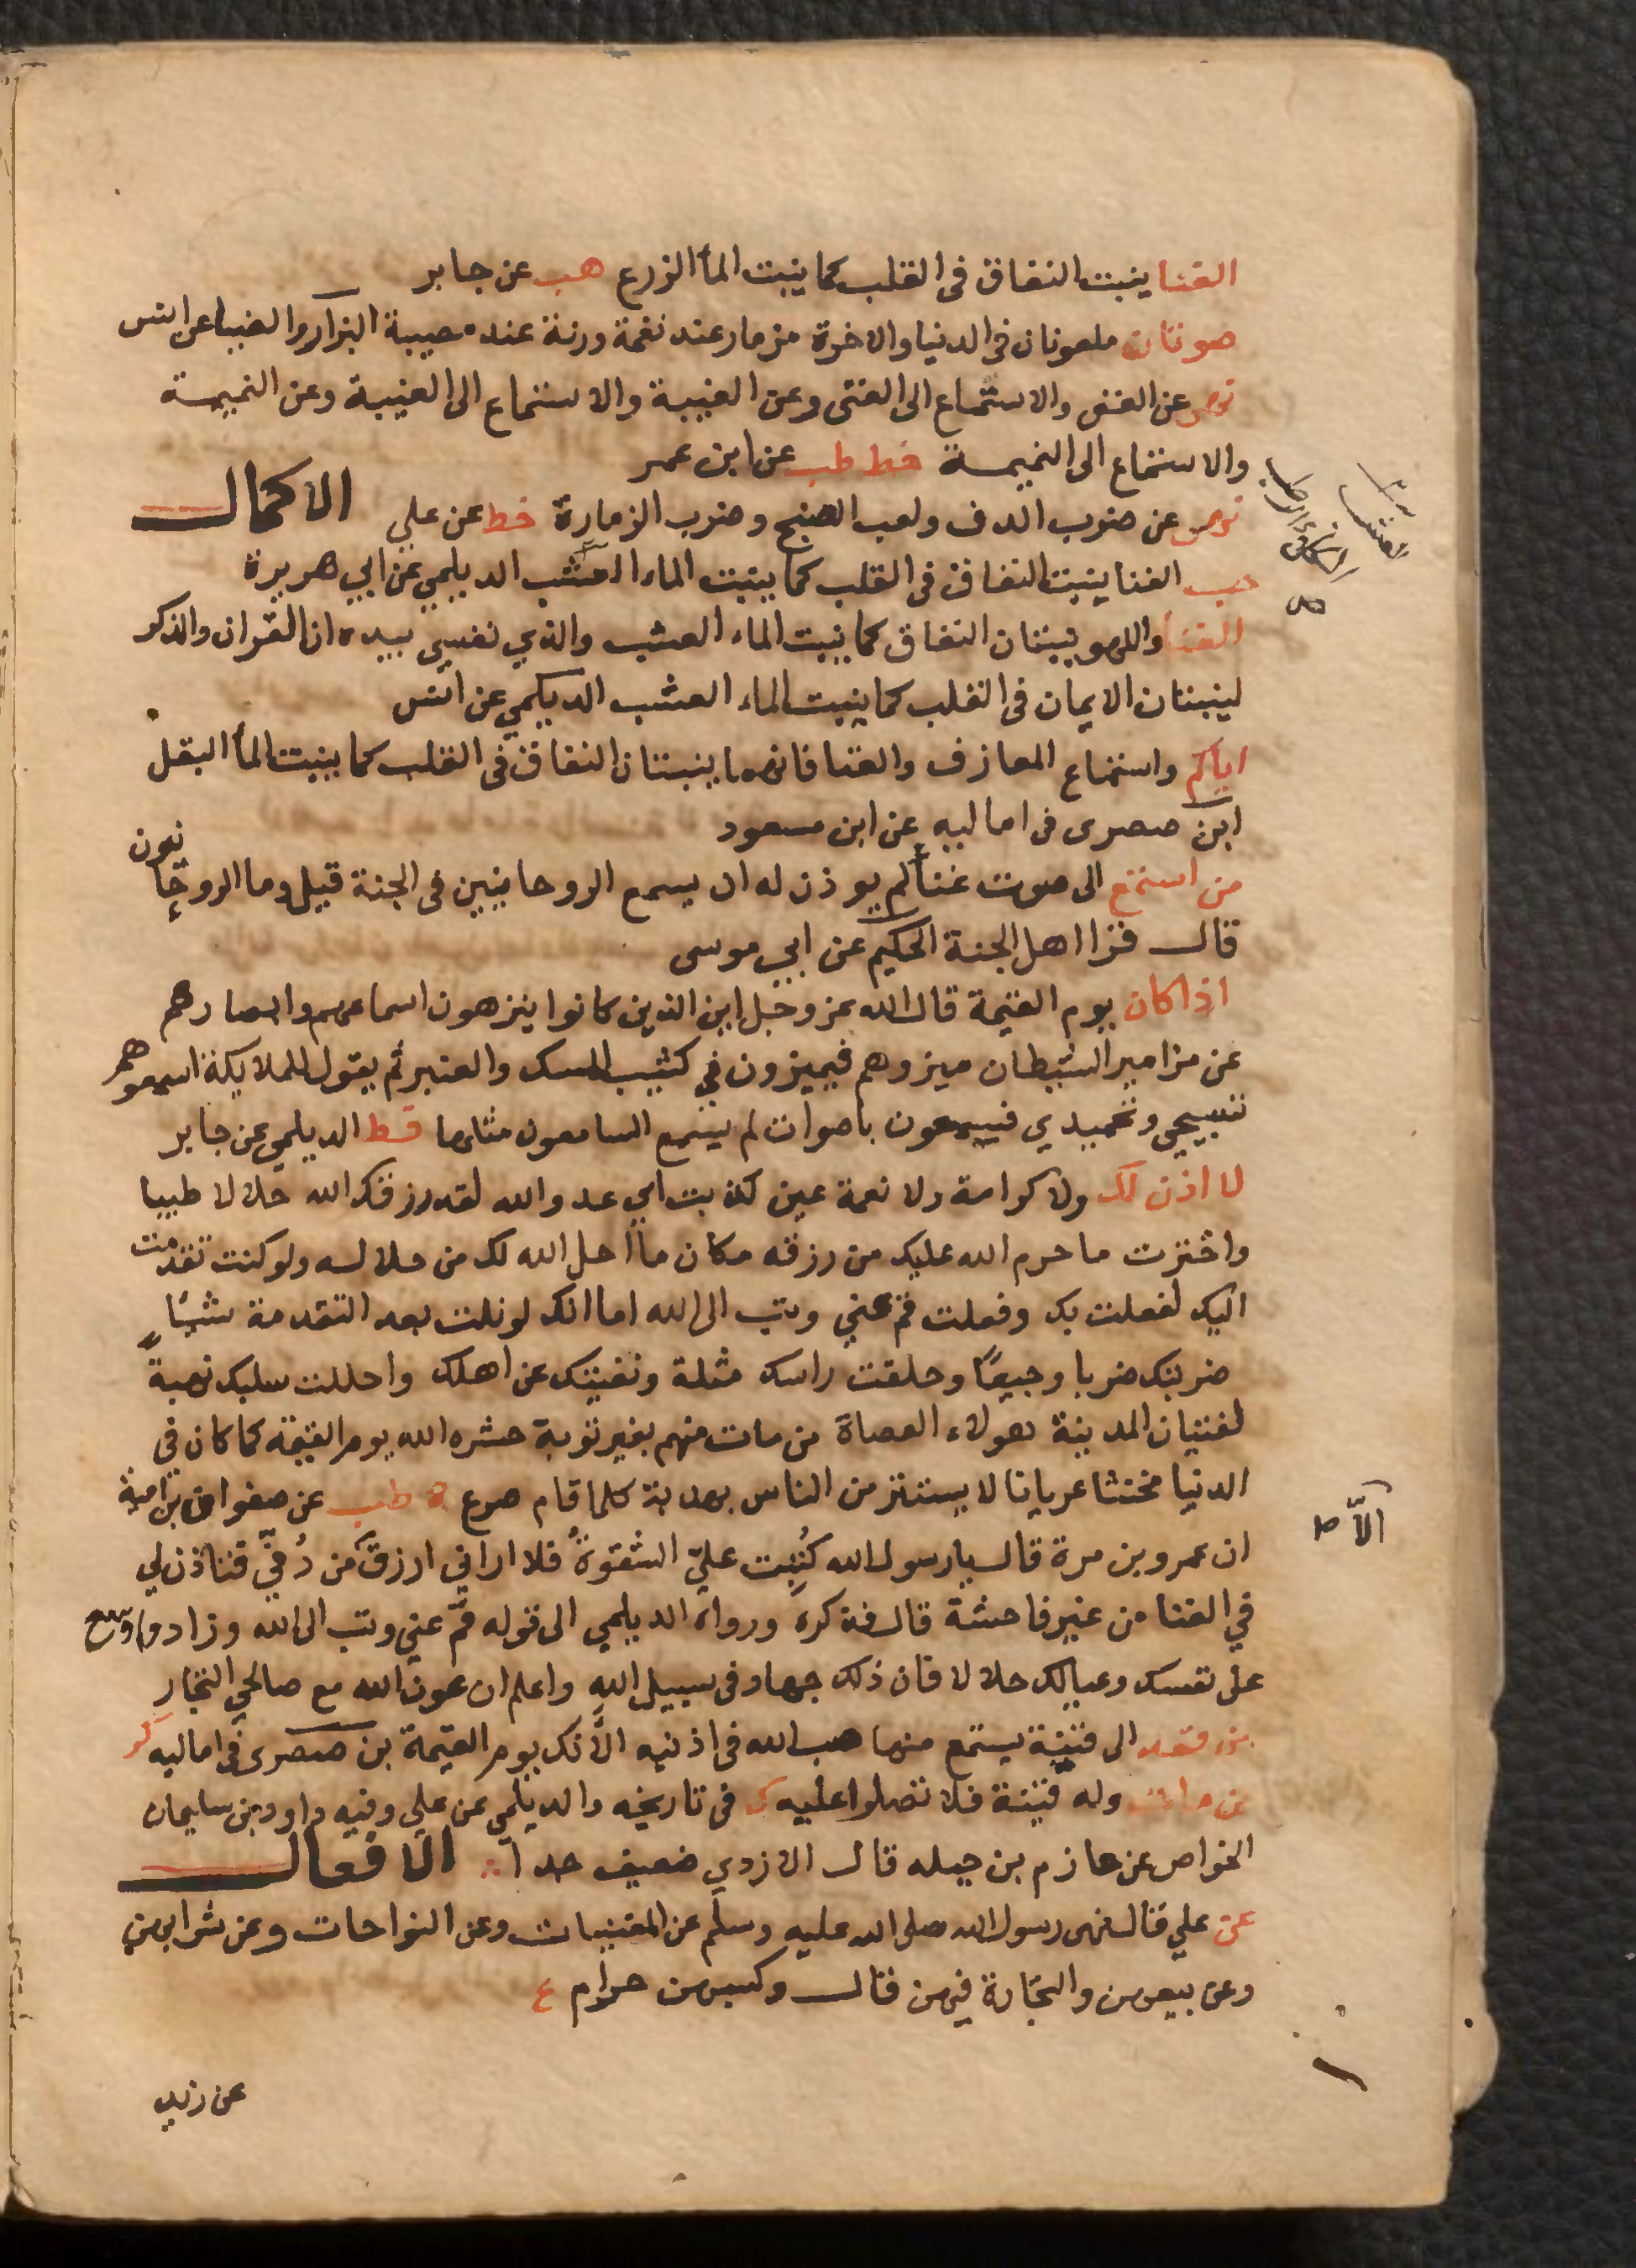 الغنا ينبت النفاق فى القلب كما ينبت الماء الزرع هب عن جابر
صوتان ملعونان فى الدنيا والاخرة مزمار عند نغمة ورنة عند مصيبة البزار والضيا عن انس
نهى عن الغنى والاستماع الى الغنى وعن الغيبة والاستماع الى الغيبة وعن النميمة
والاستماع الى النميمة خط طب عن ابن عمر
نهى عن ضرب الدف ولعب الصنج وضرب الزمارة خط عن علي الاكمال
حب الغنا ينبت النفاق فى القلب كما ينبت الماء العشب الديلمي عن ابي هريرة
الغنا واللهو ينبتان النفاق كما ينبت الماء العشب والذي نفسي بيده ان القران والذكر
لينبتان الايمان فى القلب كما ينبت الماء العشب الديلمي عن انس
اياكم واستماع المعازف والغنا فانهما ينبتان النفاق فى القلب كما ينبت الماء البقل
ابن صصرى فى اماليه عن ابن مسعود
من استمع الى صوت غناء لم يوذن له ان يسمع الروحانيين فى الجنة قيل وما الروحانيون
قال قرا اهل الجنة الحكيم عن ابي موسى
اذا كان يوم القيمة قال الله عز وجل اين الذين كانوا ينزهون اسماعهم وابصارهم
عن مزامير الشيطان ميزوهم فيميزون في كثيب المسك والعنبر ثم يقول للملايكة اسمعوهم
تسبيحي وتحميدي فيسمعون باصوات لم يسمع السامعون مثلها قط الديلمي عن جابر
لا اذن لك ولا كرامة ولا نعمة عين كذبت اي عدو الله لقد رزقك الله حلالا طيبا
واخترت ما حرم الله عليك من رزقه مكان ما احل الله لك من حلاله ولو كنت تقدمت
اليك لفعلت بك وفعلت قم عني وتب الى الله اما انك لو نلت بعد التقدمة شيئا
ضربتك ضربا وجيعا وحلقت راسك مثلة ونفيتك عن اهلك واحللت سلبك نهبة
لفتيان المدينة هولاء العصاة من مات منهم بغير توبة حشره الله يوم القيمة كما كان في
الدنيا مخنثا عريانا لا يستتر من الناس بهدبة كلما قام صرع ه طب عن صفوان بن امية
ان عمرو بن مرة قال يارسول الله كُتبت عليّ الشقوةُ فلا اراني ارزق من دُفّي فتاذن لي
في الغنا من غير فاحشة قال فذكره ورواه الديلمي الى قوله قم عني وتب الى الله وزاد واوسع
على نفسك وعيالك حلالا فان ذلك جهاد فى سبيل الله واعلم ان عون الله مع صالحي التجار
من قعد الى قينة يستمع منها صب الله فى اذنيه الآنك يوم القيمة بن صصرى فى اماليه كر
من مات وله قينة فلا تصلوا عليه ك فى تاريخه والديلمي عن علي وفيه داود بن سليمان
الخواص عن حازم بن جبله قال الازدي ضعيف جدا الافعال
عن علي قال نهى رسول الله صلى الله عليه وسلم عن المغنيات وعن النواحات وعن شرايهن
وعن بيعهن والتجارة فيهن قال وكسبهن حرام ع
عن زيد
إلّا ط